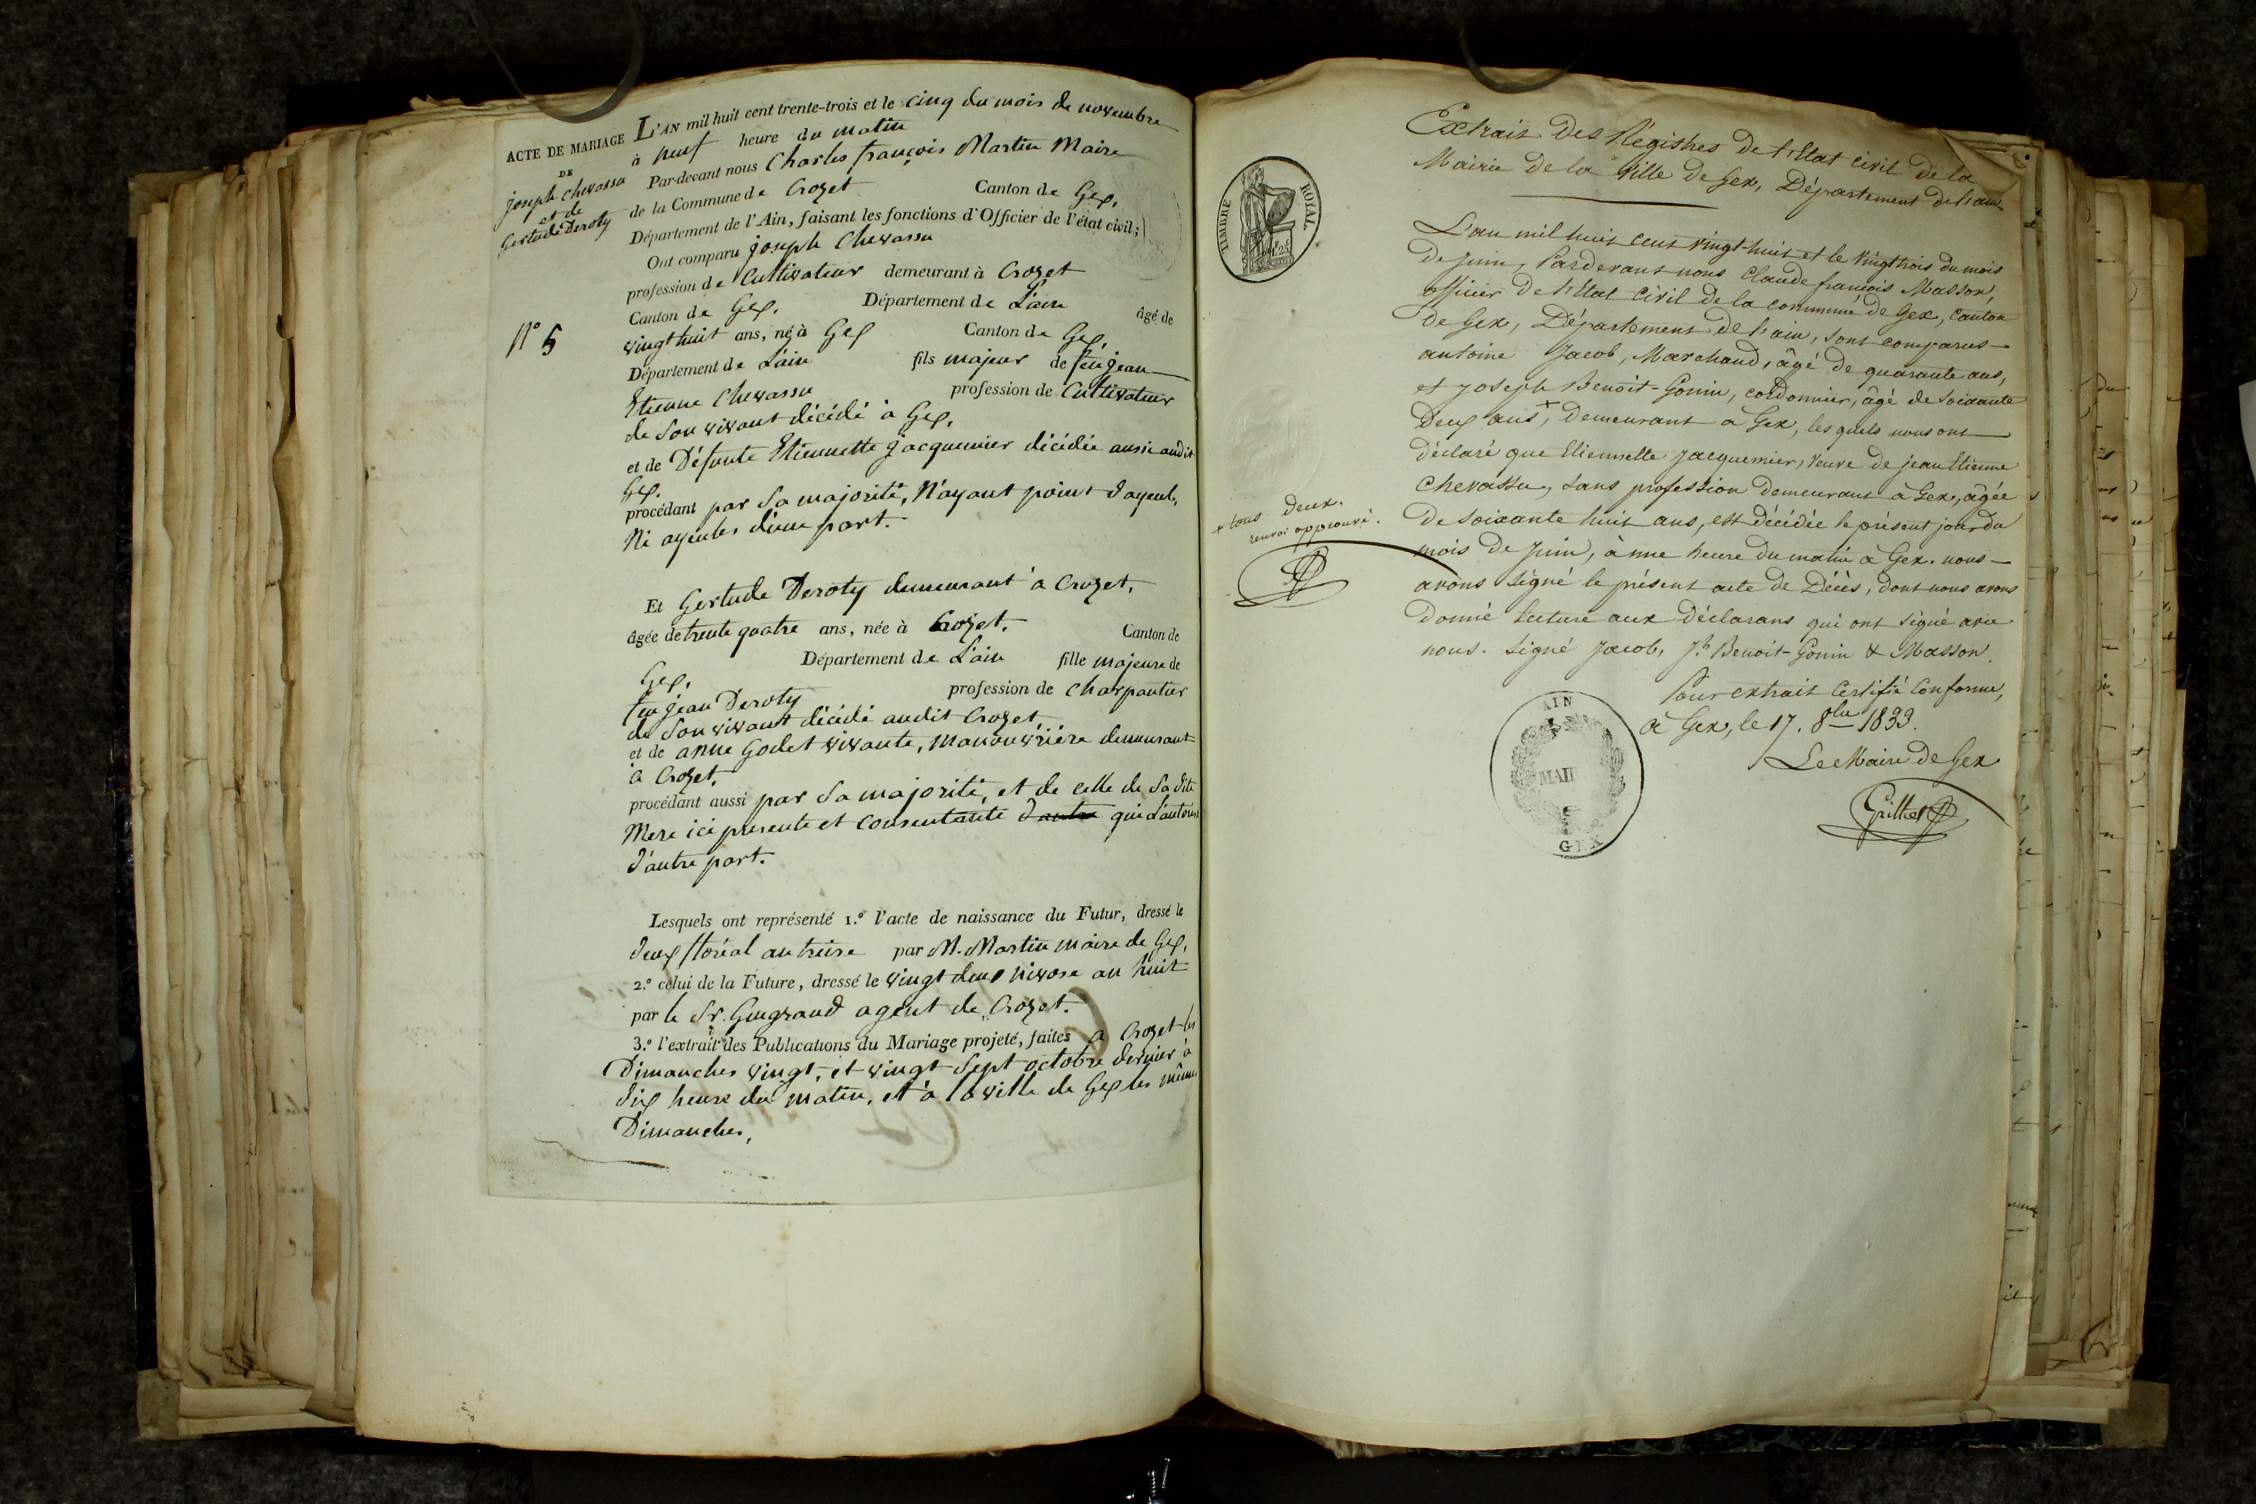 ACTE DE MARIAGE
DE
joseph Chevassu
et de
Gertude Deroty
N.º 5
L'AN mil huit cent trente-trois et le cinq du mois de novembre
à neuf heure du matin
Par-devant nous Charles françois Martin Maire
de la Commune de Crozet Canton de Gex,
Département de l'Ain, faisant les fonctions d'Officier de l'état civil;
Ont comparu joseph Chevassu
profession de Cultivateur demeurant à Crozet
Canton de Gex, Département de L'ain âgé de
vingt huit ans, né à Gex Canton de Gex,
Département de L'ain fils majeur de feu jean
Etienne Chevassu profession de Cultivateur
de Son vivant décédé à Gex,
et de Défunte Etiennette jacquemier décédée aussi audit
Gex,
procédant par Sa majorité, N'ayant point d'ayeul,
Ni ayeules d'une part.
Et Gertude Deroty demeurant à Crozet,
âgée de trente quatre ans, née à Crozet, Canton de
Gex, Département de L'ain fille majeure de
feu jean Deroty profession de Charpentier
de Son vivant décédé audit Crozet,
et de anne Godet vivante, Manouvrière demeurant
à Crozet,
procédant aussi par Sa majorité, et de celle de Sadite
Mere ici presente et Consentante d'autre qui L'autorise
d'autre part.
Lesquels ont représenté 1.º l'acte de naissance du Futur, dressé le
deux floréal an treise par M. Martin maire de Gex,
2.º celui de la Future, dressé le vingt deux nivose an huit
par le Sr. Gingrand agent de Crozet.
3.º l'extrait des Publications du Mariage projeté, faites a Crozet les
Dimanches vingt, et vingt Sept octobre dernier à
dix heure du matin, et à la ville de Gex les même
Dimanches,
TIMBRE ROYAL
Extrait des Régistres de l'Etat civil de la
Mairie de la Ville de Gex, Département de l'ain.
L'an mil huit cent vingt-huit et le vingt trois du mois
de Juin, Pardevant nous Claude françois Masson,
officier de l'Etat civil de la commune de Gex, canton
de Gex, Département de l'ain, sont comparus
antoine Jacob, Marchand, âgé de quarante ans,
et Joseph Benoit-Gonin, cordonnier, âgé de soixante
Deux ans +, demeurant à Gex, lesquels nous ont
déclaré que Etiennette Jacquemier, veuve de jean Etienne
Chevassu, sans profession demeurant à Gex, âgée
de soixante huit ans, est décédée le présent jour du
mois de Juin, à une heure du matin à Gex. nous
avons signé le présent acte de Décès, dont nous avons
donné lecture aux déclarans qui ont signé avec
nous. Signé Jacob, Jh. Benoit-Gonin & Masson.
+ tous deux.
renvoi approuvé.
Pour extrait certifié conforme,
à Gex, le 17. 8bre 1833.
Le Maire de Gex
AIN
MAIRIE
GEX